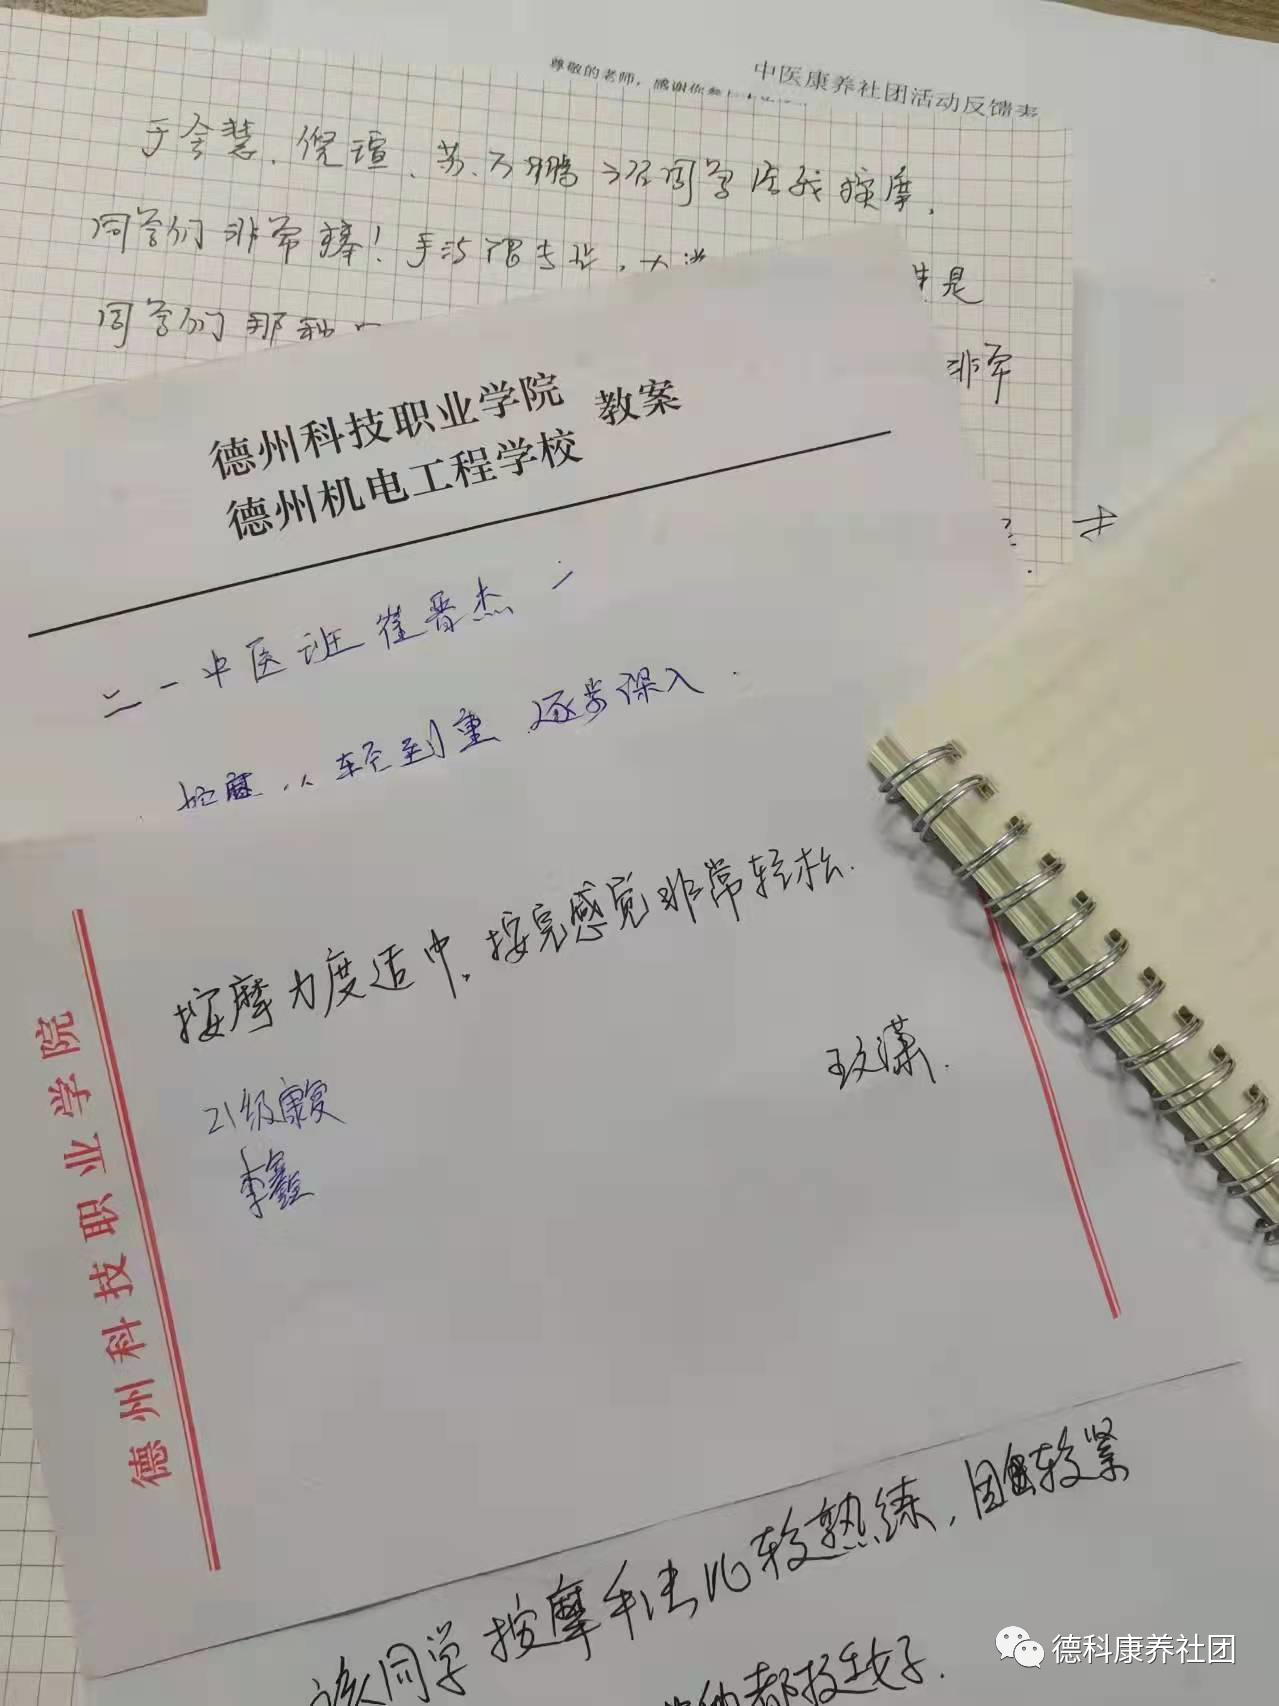 中医康养社团活动反馈表
尊敬的老师，感谢你参
于会慧、倪瑄、苏万鹏 同学 按摩，
同学们非常棒！手法很专业，
同学们那种
是
非常
德州科技职业学院
德州机电工程学校
教案
二一中医班崔晋杰
按摩 从轻到重 逐步深入
按摩力度适中，按完感觉非常轻松.
玟潇.
21级康复
李鑫
德州科技职业学院
该同学按摩手法比较熟练，
较紧
都挺好.
德科康养社团